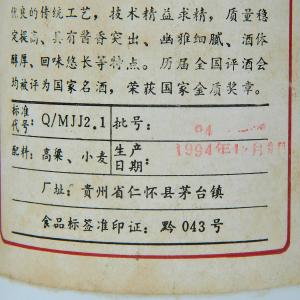 优良的传统工艺，技术精益求精，质量稳
定提高、具有酱香突出、幽雅细腻、酒体
醇厚、回味悠长等特点。历届全国评酒会
均被评为国家名酒，荣获国家金质奖章。
标准代号：Q/MJJ2.1 批号：
配料：高粱、小麦 生产日期：1994年
厂址：贵州省仁怀县茅台镇
食品标签准印证：黔 043 号